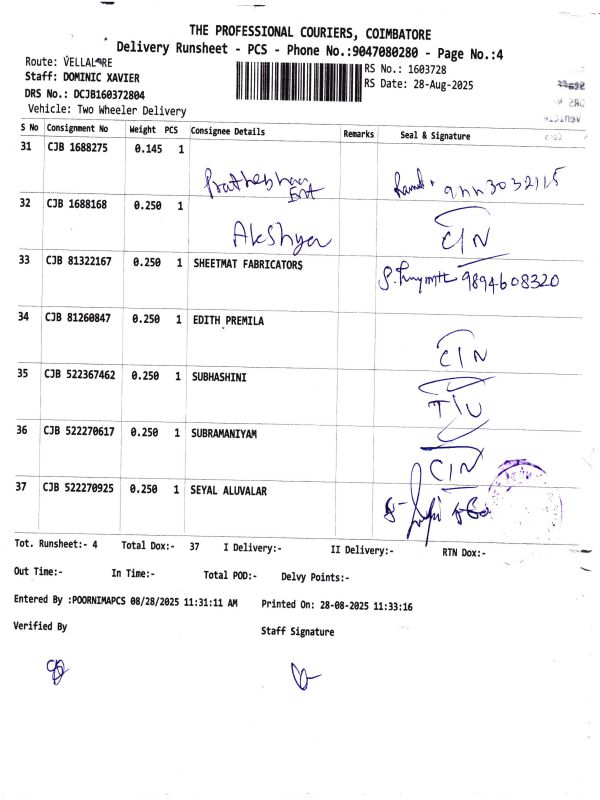 THE PROFESSIONAL COURIERS, COIMBATORE
Delivery Runsheet - PCS - Phone No.:9047080280 - Page No.:4
Route: VELLALORE
Staff: DOMINIC XAVIER
DRS No.: DCJB160372804
Vehicle: Two Wheeler Delivery
RS No.: 1603728
RS Date: 28-Aug-2025
S No Consignment No Weight PCS Consignee Details Remarks Seal & Signature
31 CJB 1688275 0.145 1
Prathebhaa
Ent
32 CJB 1688168 0.250 1
Akshya CIN
33 CJB 81322167 0.250 1 SHEETMAT FABRICATORS
9894608320
34 CJB 81260847 0.250 1 EDITH PREMILA
CIN
35 CJB 522367462 0.250 1 SUBHASHINI
36 CJB 522270617 0.250 1 SUBRAMANIYAM
CIN
37 CJB 522270925 0.250 1 SEYAL ALUVALAR
Tot. Runsheet:- 4 Total Dox:- 37 I Delivery:- II Delivery:- RTN Dox:-
Out Time:- In Time:- Total POD:- Delvy Points:-
Entered By :POORNIMAPCS 08/28/2025 11:31:11 AM Printed On: 28-08-2025 11:33:16
Verified By Staff Signature